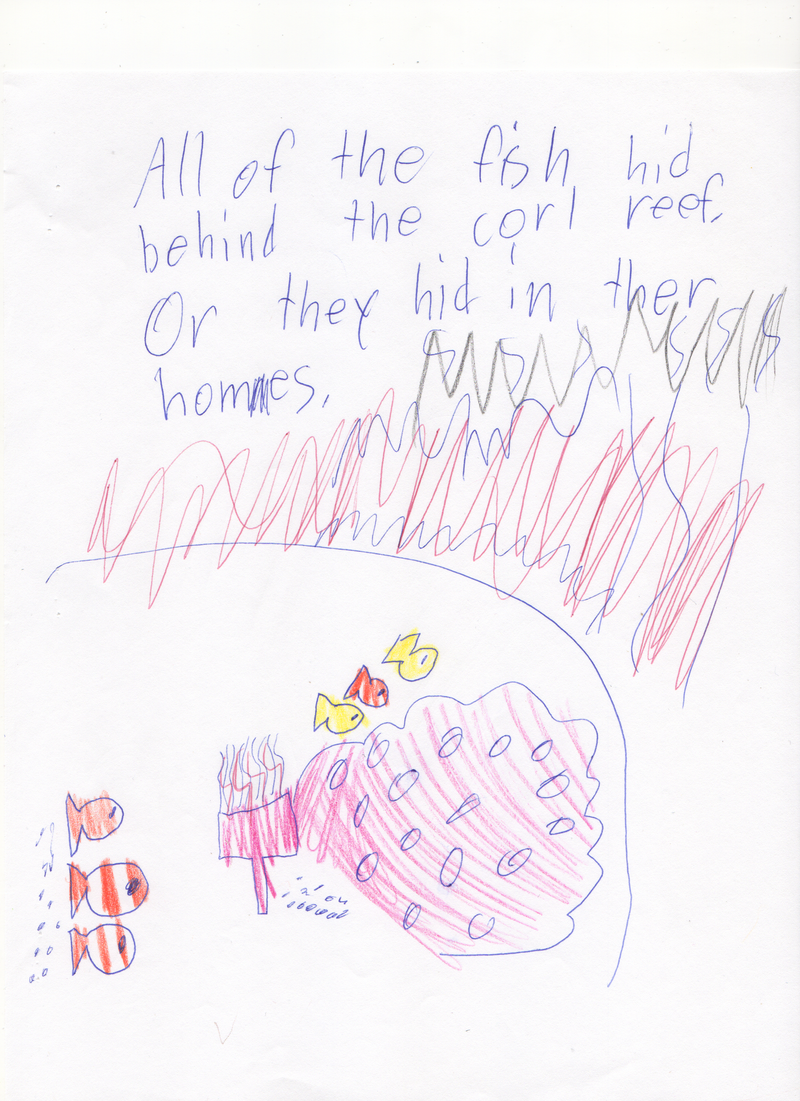 All of the fish hid
behind the corl reef.
Or they hid in ther
homes.